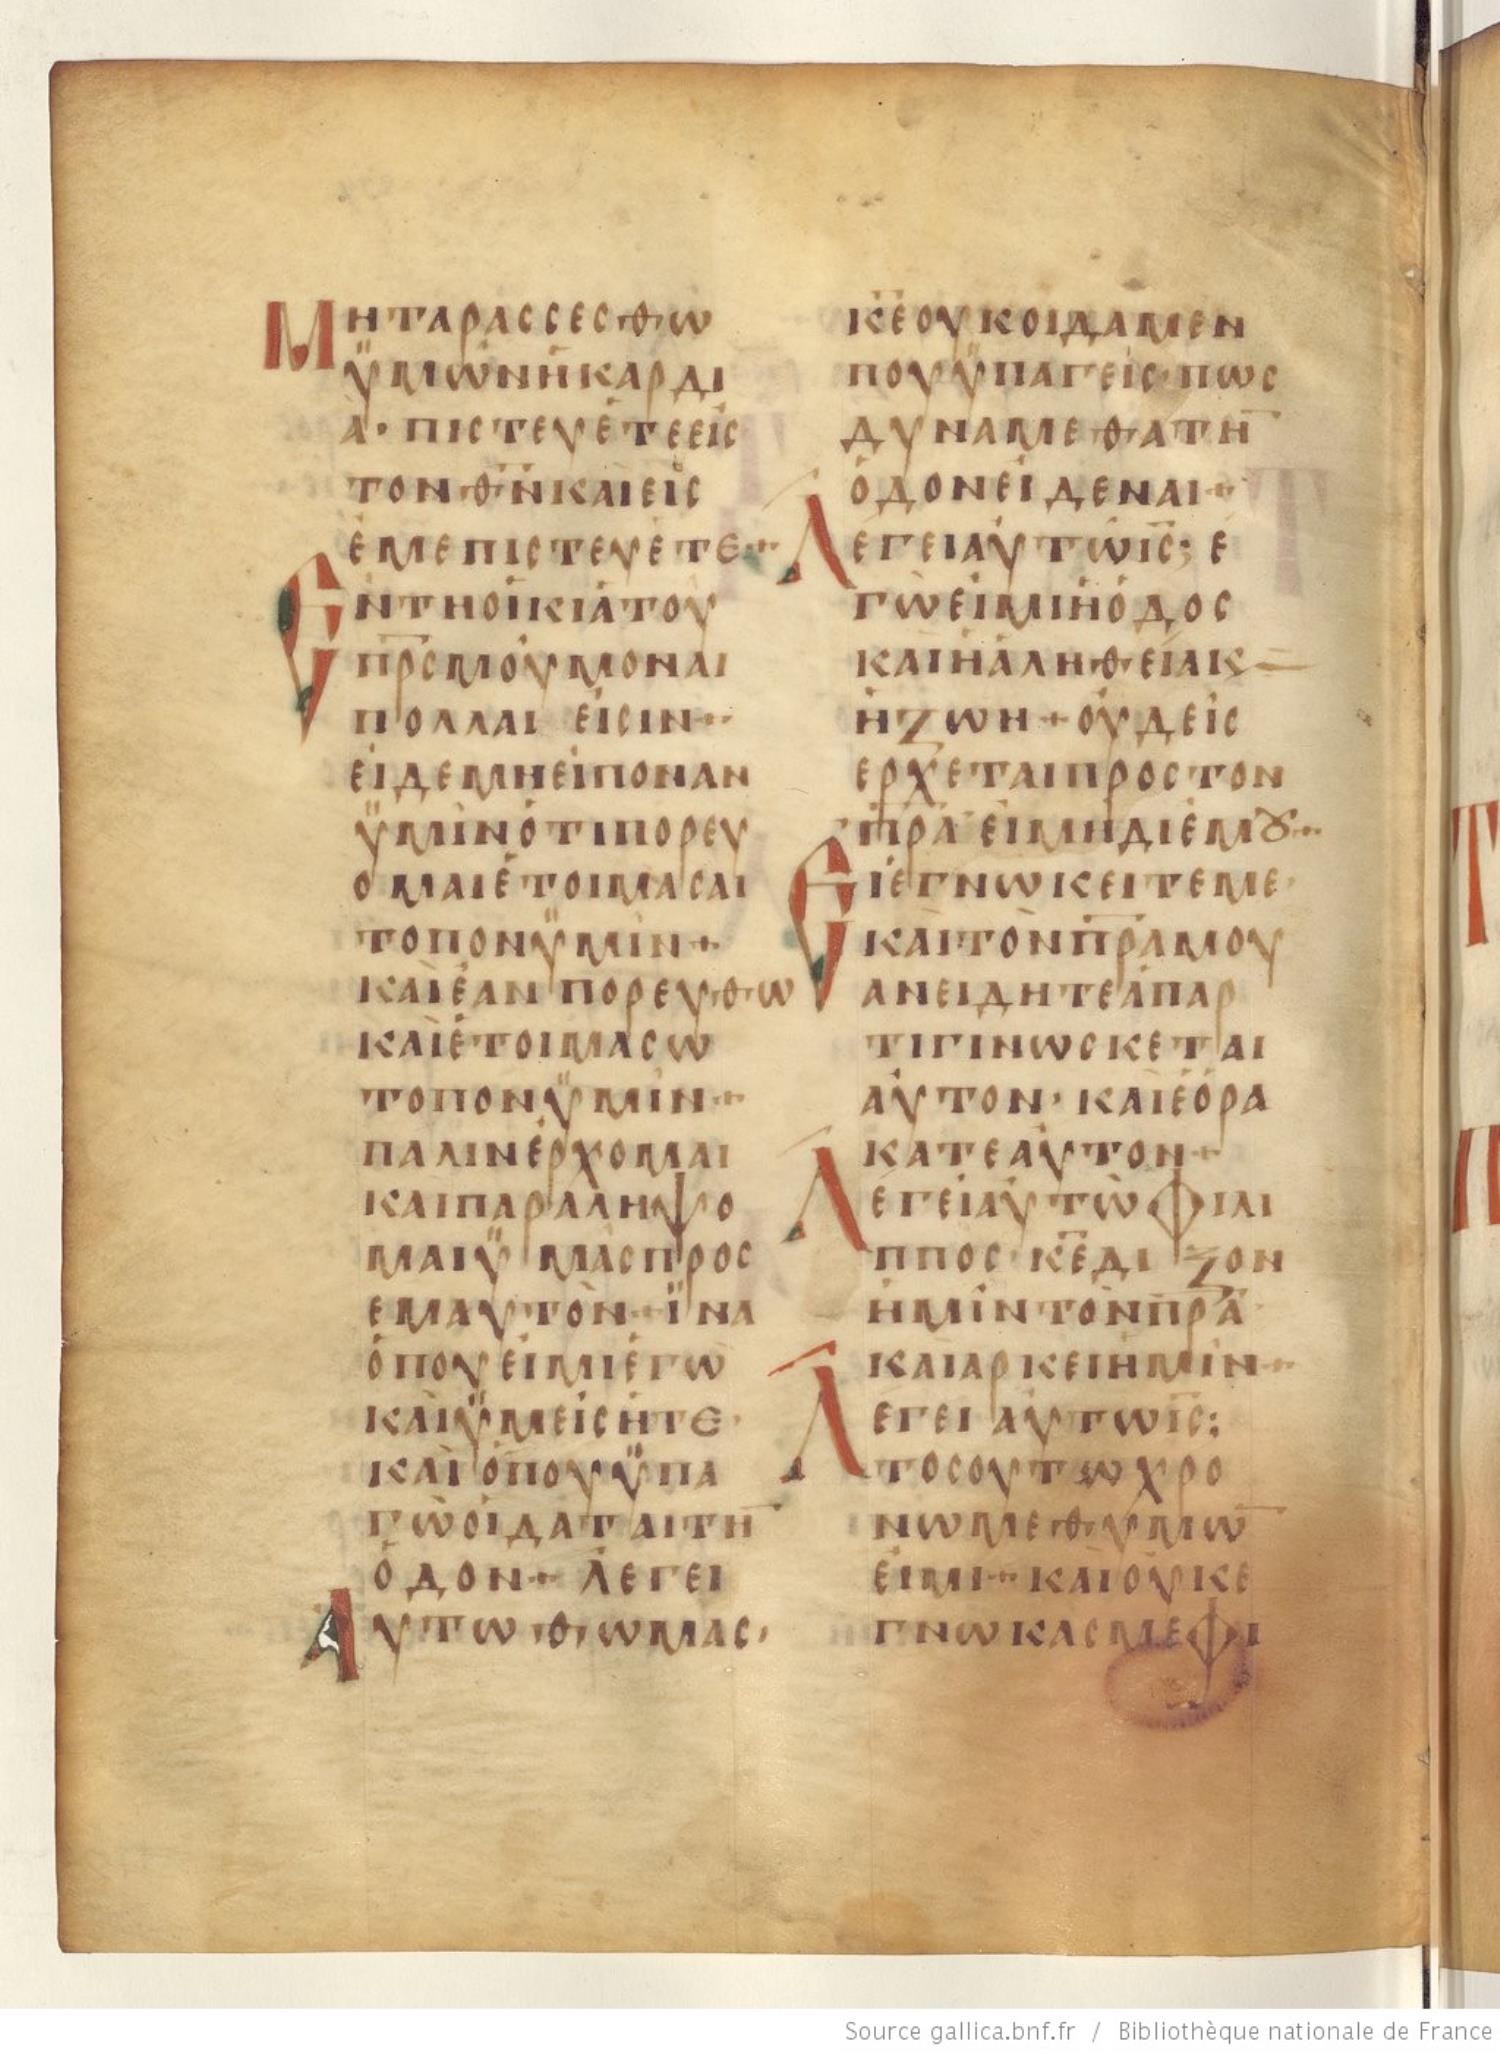 ΜΗΤΑΡΑCCECΘΩ
ΫΜΩΝΗΚΑΡΔΙ
Α· ΠΙCΤΕΥΕΤΕΕΙC
ΤΟΝΘ̅Ν̅ΚΑΙΕΙC
ΕΜΕΠΙCΤΕΥΕΤΕ·
ΕΝΤΗΟΙΚΙΑΤΟΥ
Π̅Ρ̅C̅ΜΟΥΜΟΝΑΙ
ΠΟΛΛΑΙ ΕΙCΙΝ+
ΕΙΔΕΜΗΕΙΠΟΝΑΝ
ΫΜΙΝΟΤΙΠΟΡΕΥ
ΟΜΑΙΕΤΟΙΜΑCΑΙ
ΤΟΠΟΝΫΜΙΝ+
ΚΑΙΕΑΝ ΠΟΡΕΥΘΩ
ΚΑΙΕΤΟΙΜΑCΩ
ΤΟΠΟΝΫΜΙΝ+
ΠΑΛΙΝΕΡΧΟΜΑΙ
ΚΑΙΠΑΡΑΛΗΨΟ
ΜΑΙΫΜΑCΠΡΟC
ΕΜΑΥΤΟΝ+ΪΝΑ
ΟΠΟΥΕΙΜΙΕΓΩ
ΚΑΙΫΜΕΙCΗΤΕ·
ΚΑΙΟΠΟΥΫΠΑ
ΓΩΟΙΔΑΤΑΙΤΗ̅
ΟΔΟΝ+ ΛΕΓΕΙ
ΑΥΤΩΘΩΜΑC·
Κ̅Ε̅ΟΥΚΟΙΔΑΜΕΝ
ΠΟΥΫΠΑΓΕΙC·ΠΩC
ΔΥΝΑΜΕΘΑΤΗ̅
ΟΔΟΝΕΙΔΕΝΑΙ+
ΛΕΓΕΙΑΥΤΩΙ̅C̅; Ε
ΓΩΕΙΜΙΗΟΔΟC
ΚΑΙΗΑΛΗΘΕΙΑΚ
ΗΖΩΗ+ΟΥΔΕΙC
ΕΡΧΕΤΑΙΠΡΟCΤΟΝ
Π̅Ρ̅Α̅ ΕΙΜΗΔΙΕΜȢ+
ΕΙΕΓΝΩΚΕΙΤΕΜΕ·
ΚΑΙΤΟΝΠ̅Ρ̅Α̅ΜΟΥ
ΑΝΕΙΔΗΤΕΑΠΑΡ
ΤΙΓΙΝΩCΚΕΤΑΙ
ΑΥΤΟΝ· ΚΑΙΕΟΡΑ
ΚΑΤΕΑΥΤΟΝ+
ΛΕΓΕΙΑΥΤΩΦΙΛΙ
ΠΠΟC·Κ̅Ε̅ΔΙ ΖΟΝ
ΗΜΙΝΤΟΝΠ̅Ρ̅Α̅
ΚΑΙΑΡΚΕΙΗΜΙΝ+
ΛΕΓΕΙ ΑΥΤΩΙ̅C̅;
ΤΟCΟΥΤΩΧΡΟ
ΝΩΜΕΘΥΜΩ̅
ΕΙΜΙ+ΚΑΙΟΥΚΕ
ΓΝΩΚΑCΜΕΦΙ
Source gallica.bnf.fr / Bibliothèque nationale de France